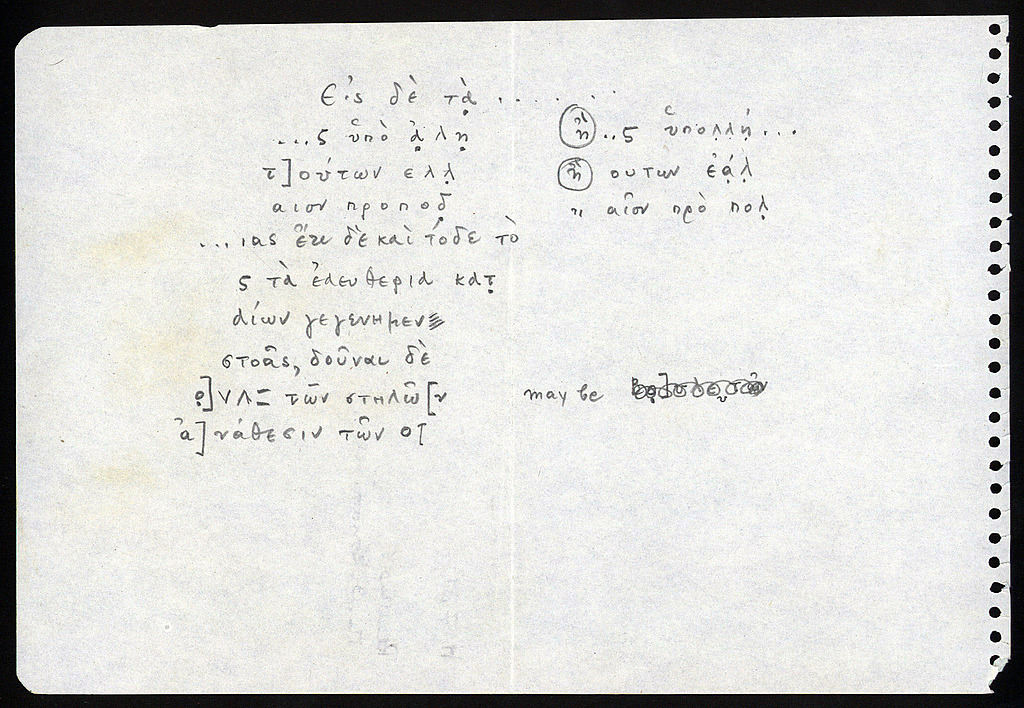 Εἰς δὲ τὰ̣ . . . . . .
...ς ὑπὸ ἀ̣λη̣
τ]ούτων ελλ̣
αιον προποδ̣
...ιας ἔτι δὲ καὶ τόδε τὸ
ς τὰ ἐλευθερια κατ̣
αίων γεγενημεν
στοᾶς, δοῦναι δὲ
ο̣]νλξ τῶν στηλῶ[ν
ἀ]νάθεσιν τῶν ο[
ἢ ..ς ὑπολλή̣...
ἢ ουτων ἐά̣λ̣
" αῖον πρὸ πολ̣
may be